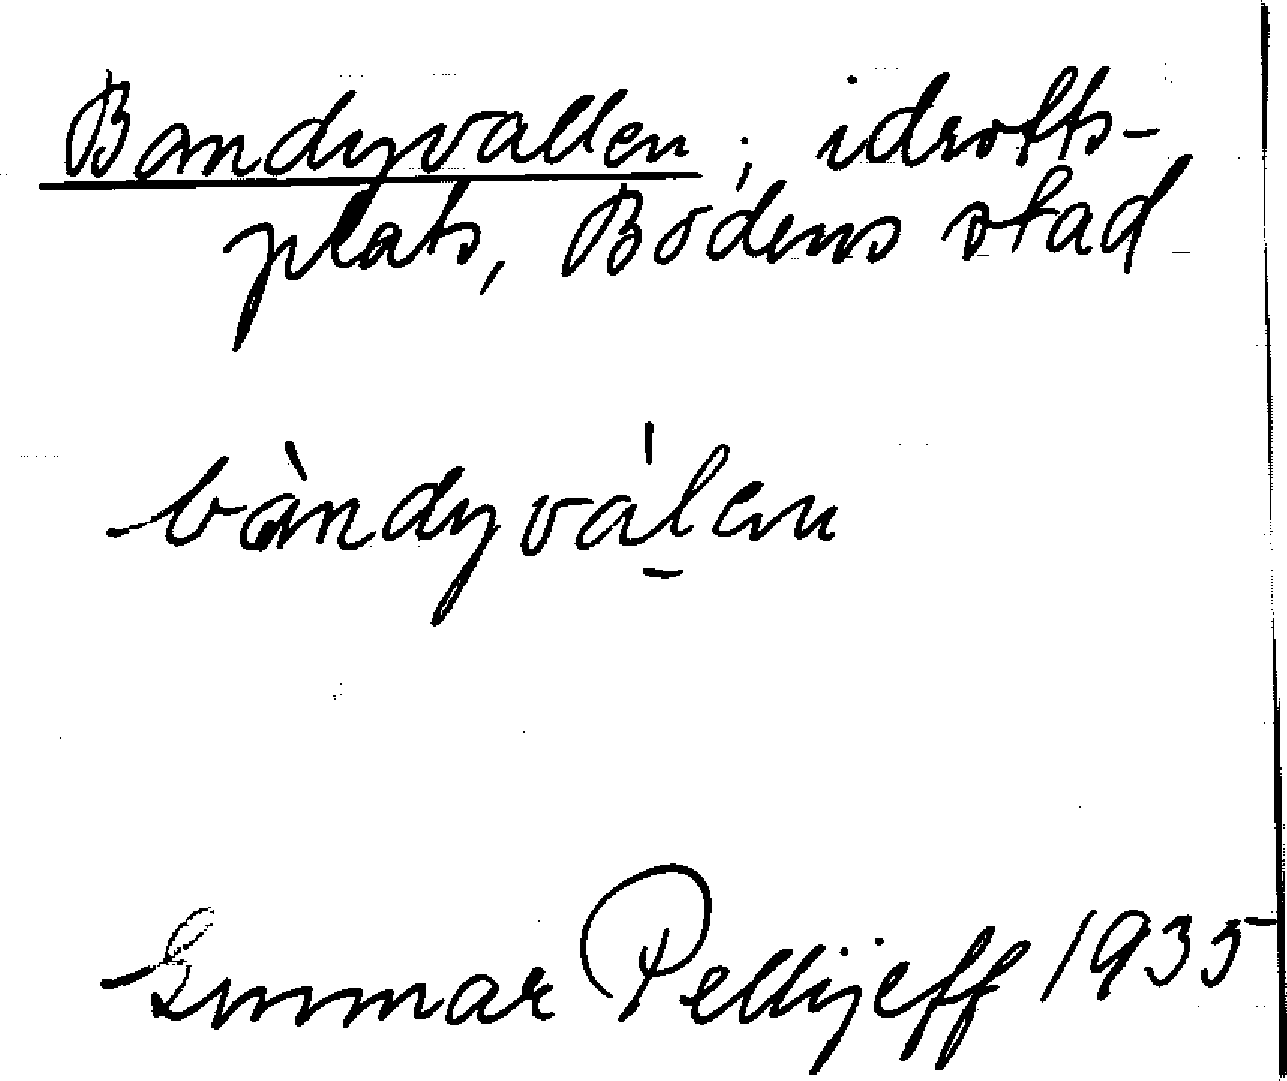 Bandyvallen; idrotts-
plats, Bodens stad
bàndyvál̲en
Gunnar Pellijeff 1935